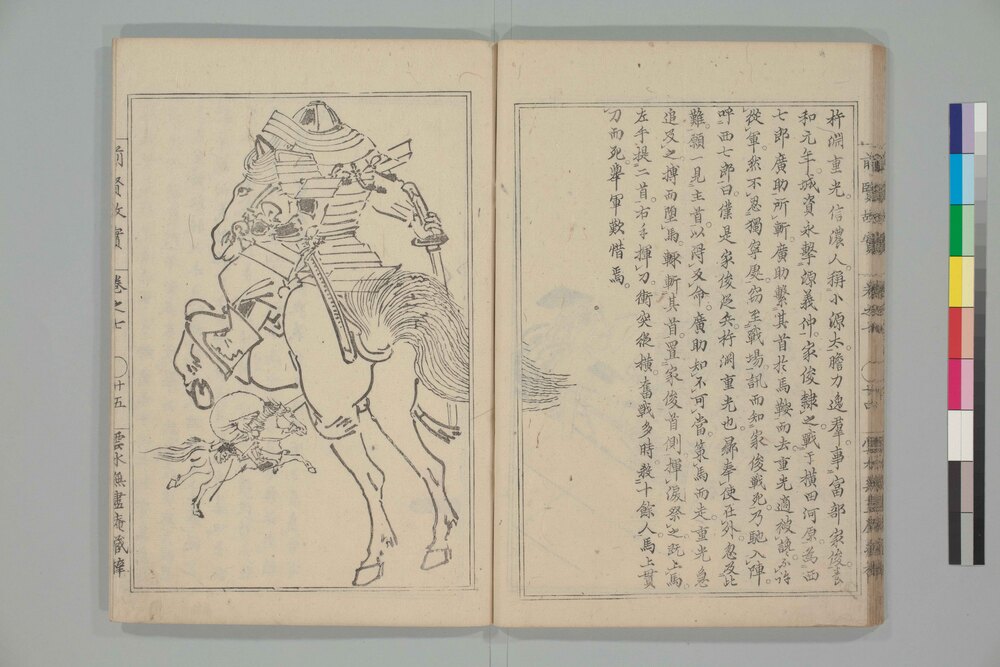 杵淵重光。信濃人。稱小源太。膽力逸羣。事富部家俊。壽
和元年。城資永擊源義仲。家俊隸之。戰于橫田河原。為西
七郎廣助所斬。廣助繫其首於馬鞍而去。重光適被譴。不許
從軍。然不忍獨寧處。窃至戰場。訊而知家俊戰死。乃馳入陣。
呼西七郎曰。僕是家俊從兵。杵淵重光也。歸奉使在外。忽及此
難。願一見主首。以得反命。廣助知不可當。策馬而走。重光急
追及之。搏而墮馬。輙斬其首。置家俊首側。揮淚祭之。既上馬。
左手提二首。右手揮刀。衝突縱橫。奮戰多時。殺十餘人。馬上貫
刀而死。舉軍歎惜焉。
前賢故實
卷之七
廿五
雲水無盡庵藏梓